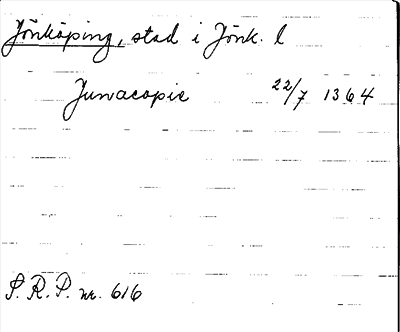 Jönköping, stad i Jönk. l
Junacopie 22/7 1364
S. R. P. nr. 616